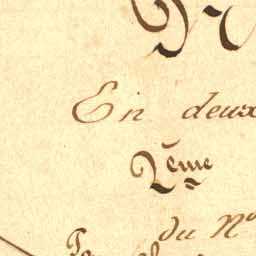 En deux
2eme
du No